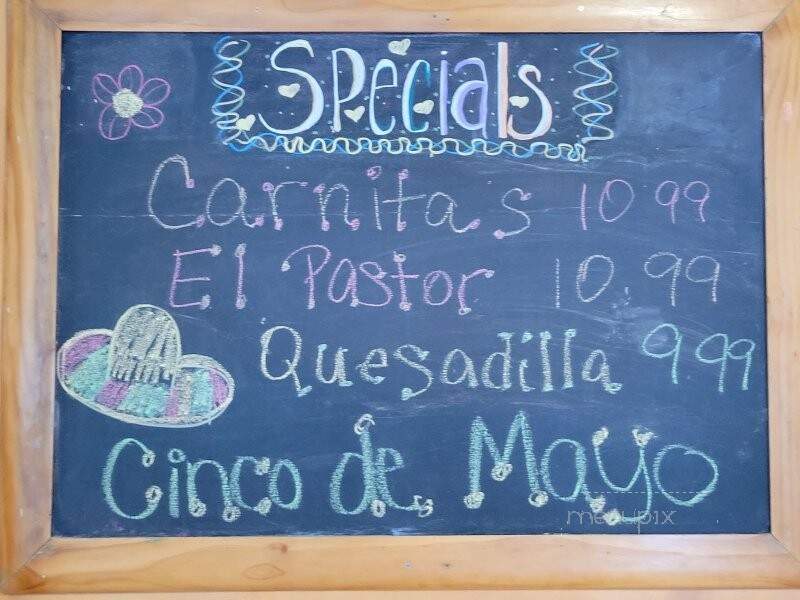 Specials
Carnitas 10 99
El Pastor 10.99
Quesadilla 9 99
Cinco de Mayo
menupix